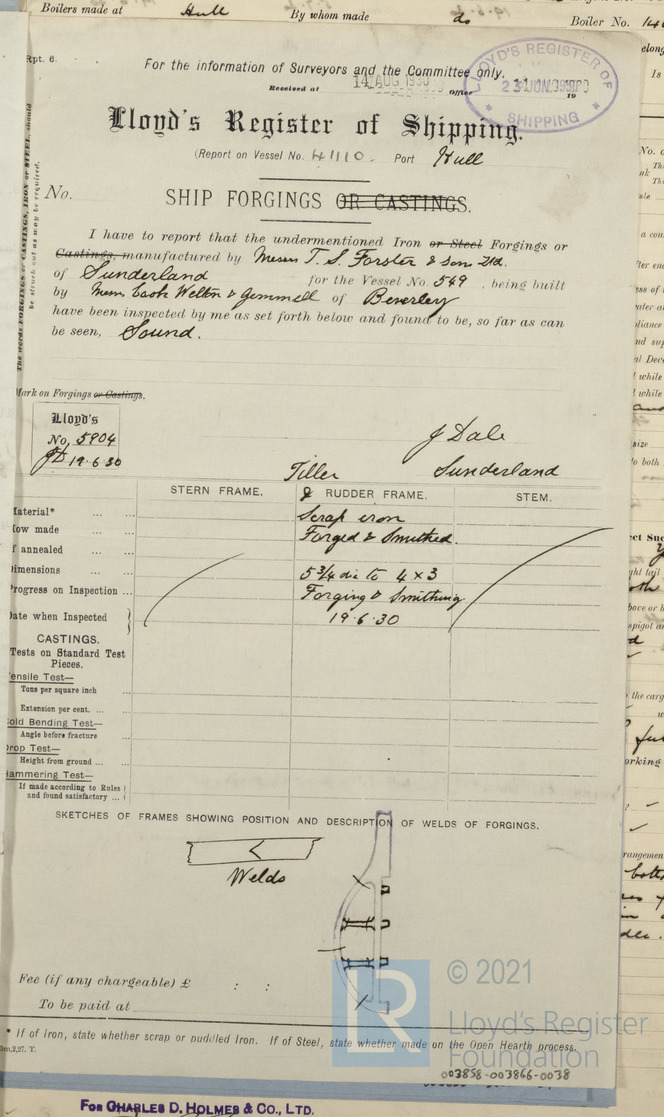 Boilers made at Hull By whom made do Boiler No.
Rpt. 6.
For the information of Surveyors and the Committee only.
Received at 14 AUG 1930 Office 19
LLOYD'S REGISTER OF
23 JUN 1930
SHIPPING
Lloyd's Register of Shipping.
(Report on Vessel No. 41110. Port Hull
No.
SHIP FORGINGS OR CASTINGS.
I have to report that the undermentioned Iron or Steel Forgings or
Castings, manufactured by Messrs T. S. Forster & Son Ltd.
of Sunderland for the Vessel No. 549, being built
by Messrs Cook Welton & Gemmell of Beverley
have been inspected by me as set forth below and found to be, so far as can
be seen, Sound.
The words FORGINGS or CASTINGS, IRON or STEEL, should
be struck out as may be required.
Mark on Forgings or Castings.
Lloyd's
No. 5904
JD 19.6.30
J Dale
Sunderland
Tiller
STERN FRAME. & RUDDER FRAME. STEM.
Material* ... ... Scrap iron
How made ... ... Forged & Smithed.
If annealed ... ...
Dimensions ... ... 5 3/4 dia to 4 x 3
Progress on Inspection ... Forging & Smithing
Date when Inspected 19.6.30
CASTINGS.
Tests on Standard Test
Pieces.
Tensile Test—
Tons per square inch ...
Extension per cent. ... ...
Cold Bending Test—
Angle before fracture ...
Drop Test—
Height from ground ... ...
Hammering Test—
If made according to Rules
and found satisfactory ...
SKETCHES OF FRAMES SHOWING POSITION AND DESCRIPTION OF WELDS OF FORGINGS.
Welds
Fee (if any chargeable) £ : :
To be paid at
* If of Iron, state whether scrap or puddled Iron. If of Steel, state whether made on the Open Hearth process.
© 2021
Lloyd's Register
Foundation
003858-003866-0038
For CHARLES D. HOLMES & CO., LTD.